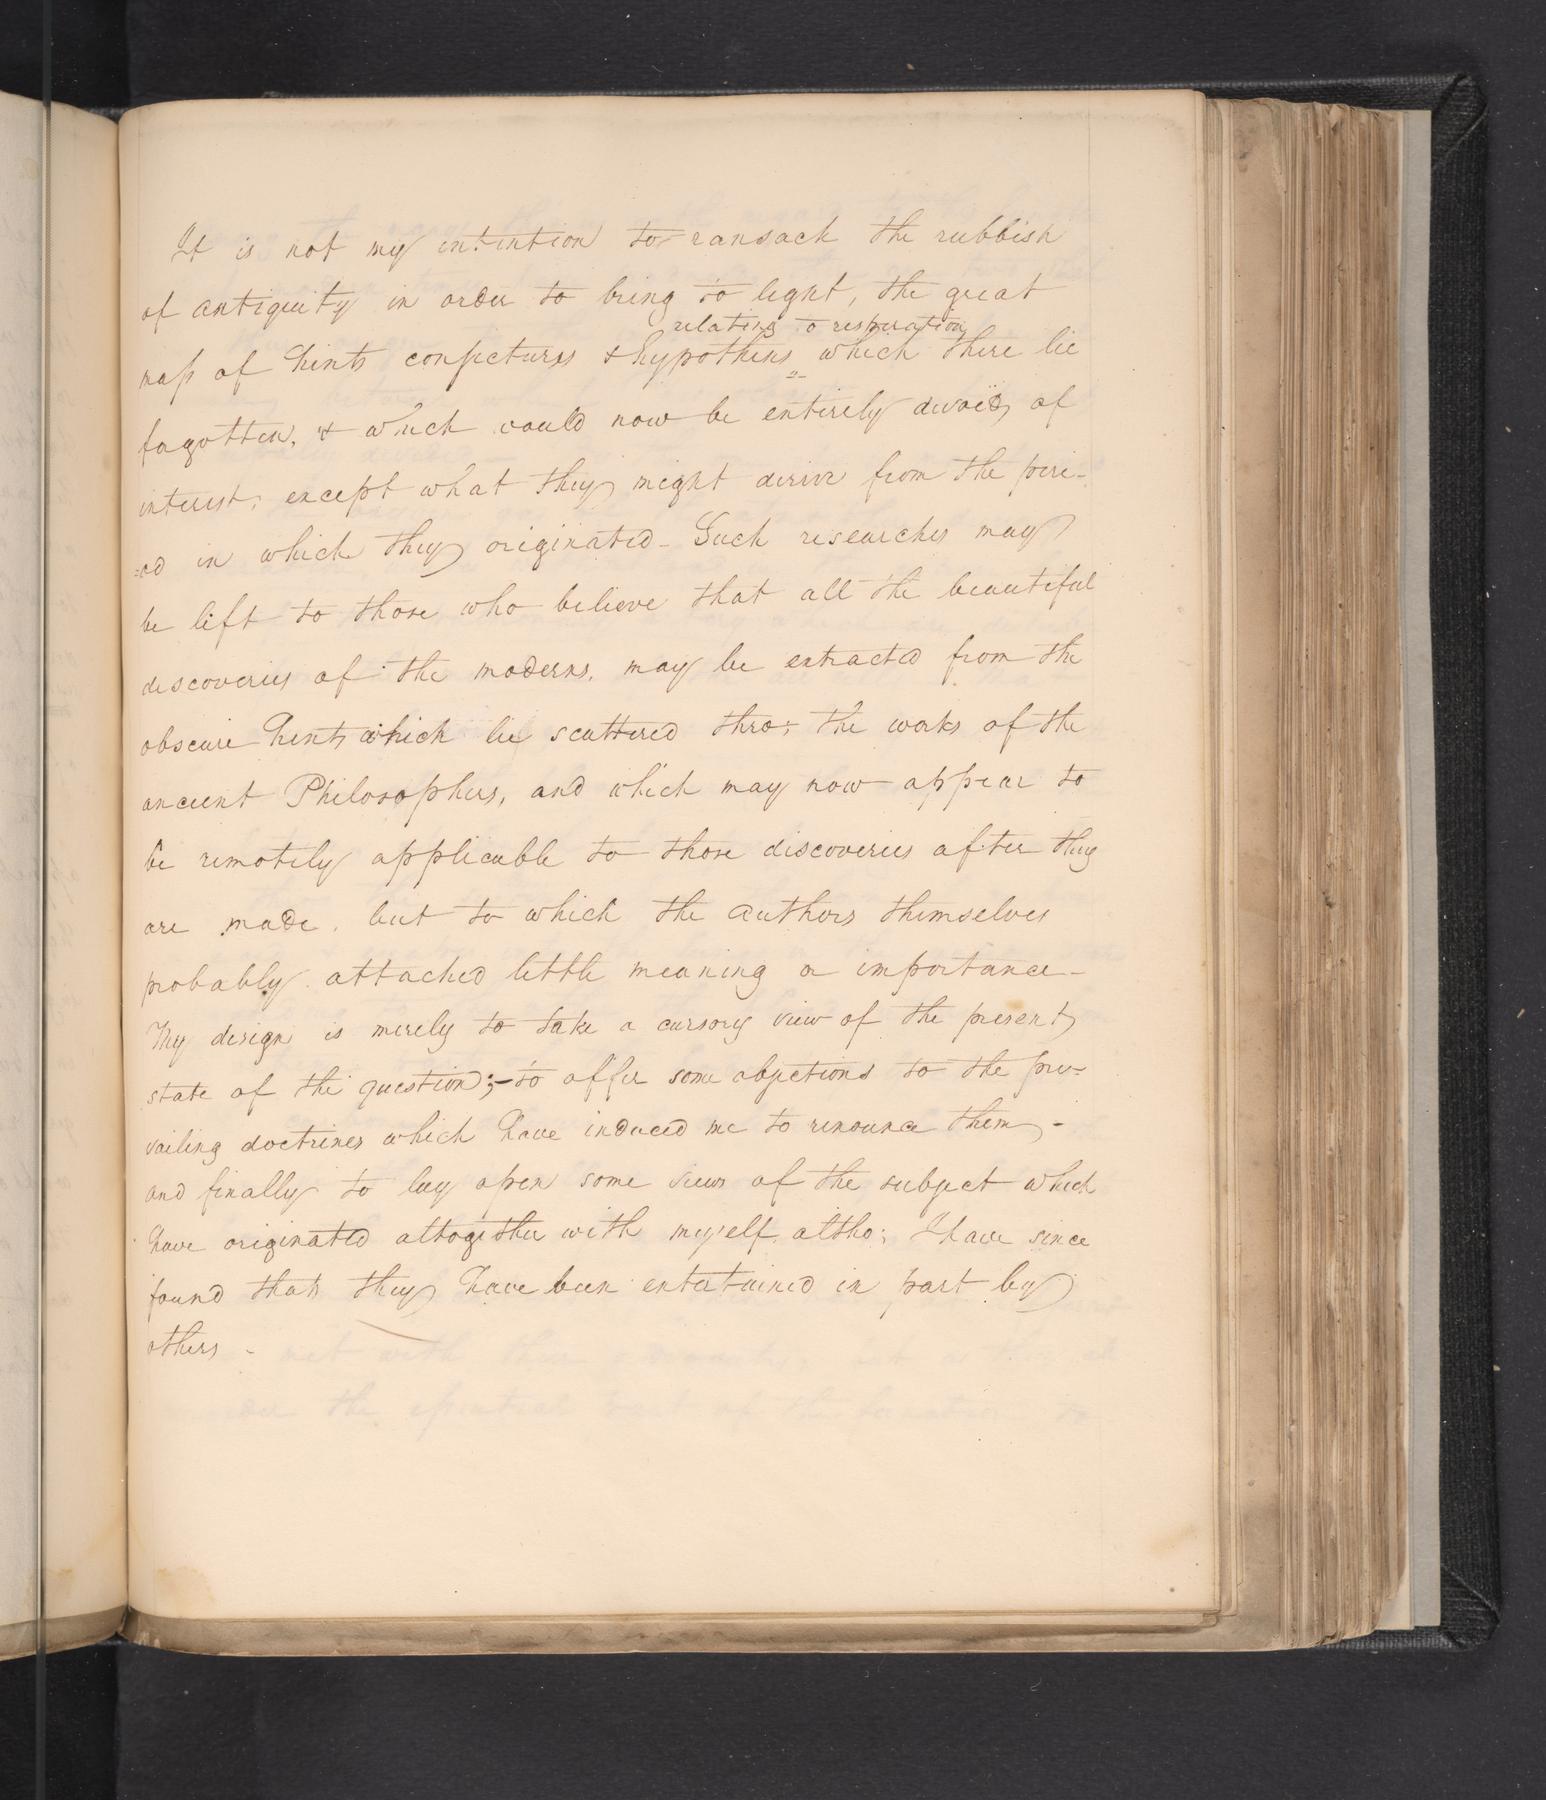 It is not my intention to ransack the rubbish
of antiquity in order to bring to light, the great
relating to respiration
mass of hints conjectures & hypotheses which there lie
forgotten, & which could now be entirely devoid of
interest, except what they might derive from the peri-
=od in which they originated - Such researches may
be left to those who believe that all the beautiful
discoveries of the moderns, may be extracted from the
obscure hints which lie scattered thro: the works of the
ancient Philosophers, and which may now appear to
be remotely applicable to those discoveries after they
are made, but to which the authors themselves
probably attached little meaning or importance -
My design is merely to take a cursory view of the present
state of the question; - to offer some objections to the pre-
vailing doctrines which have induced me to renounce them -
and finally to lay open some views of the subject which
have originated altogether with myself altho: I have since
found that they have been entertained in part by
others -